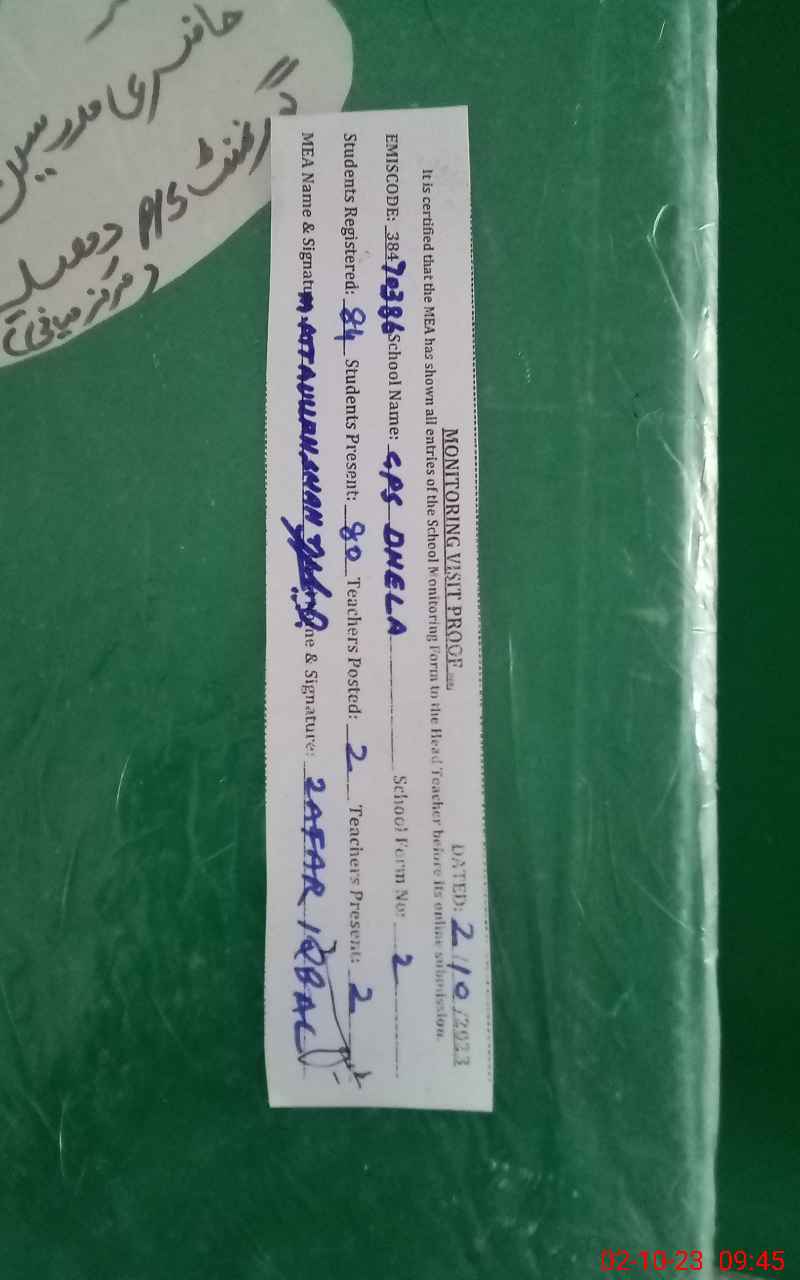 حاضری مدرسین
گورنمنٹ P/S ڈھیلہ
MONITORING VISIT PROOF
DATED: 2/10/2023
It is certified that the MEA has shown all entries of the School Monitoring Form to the Head Teacher before its online submission.
EMISCODE: 38470386 School Name: GPS DHELA School Form No: 2
Students Registered: 84 Students Present: 80 Teachers Posted: 2 Teachers Present: 2
MEA Name & Signatu ne & Signature: ZAFAR IQBAL
02-10-23 09:45